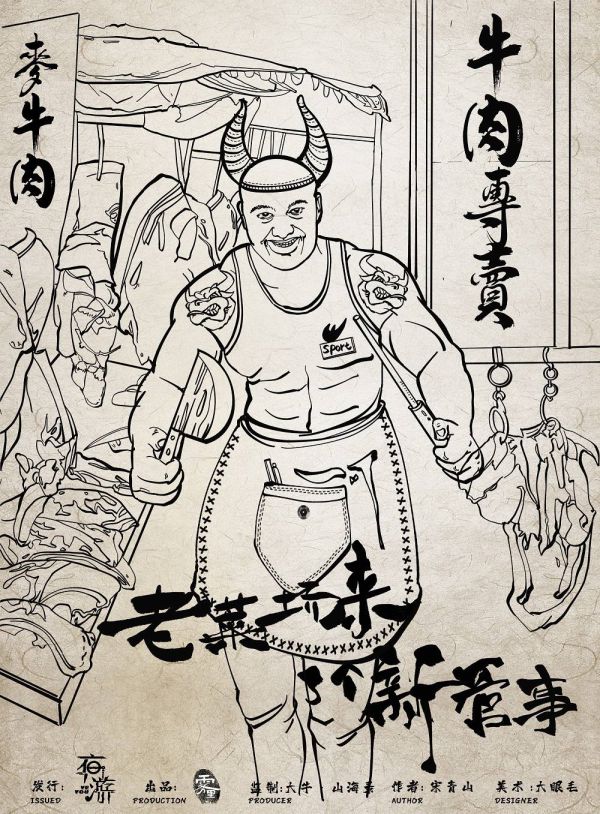 麥牛肉
牛肉專賣
Sport
老菜场来
了个新管事
发行: 夜游 出品: 监制:大牛 山海柔 作者: 宋青山 美术:大眼毛
ISSUED YE YOU PRODUCTION PRODUCER AUTHOR DESIGNER